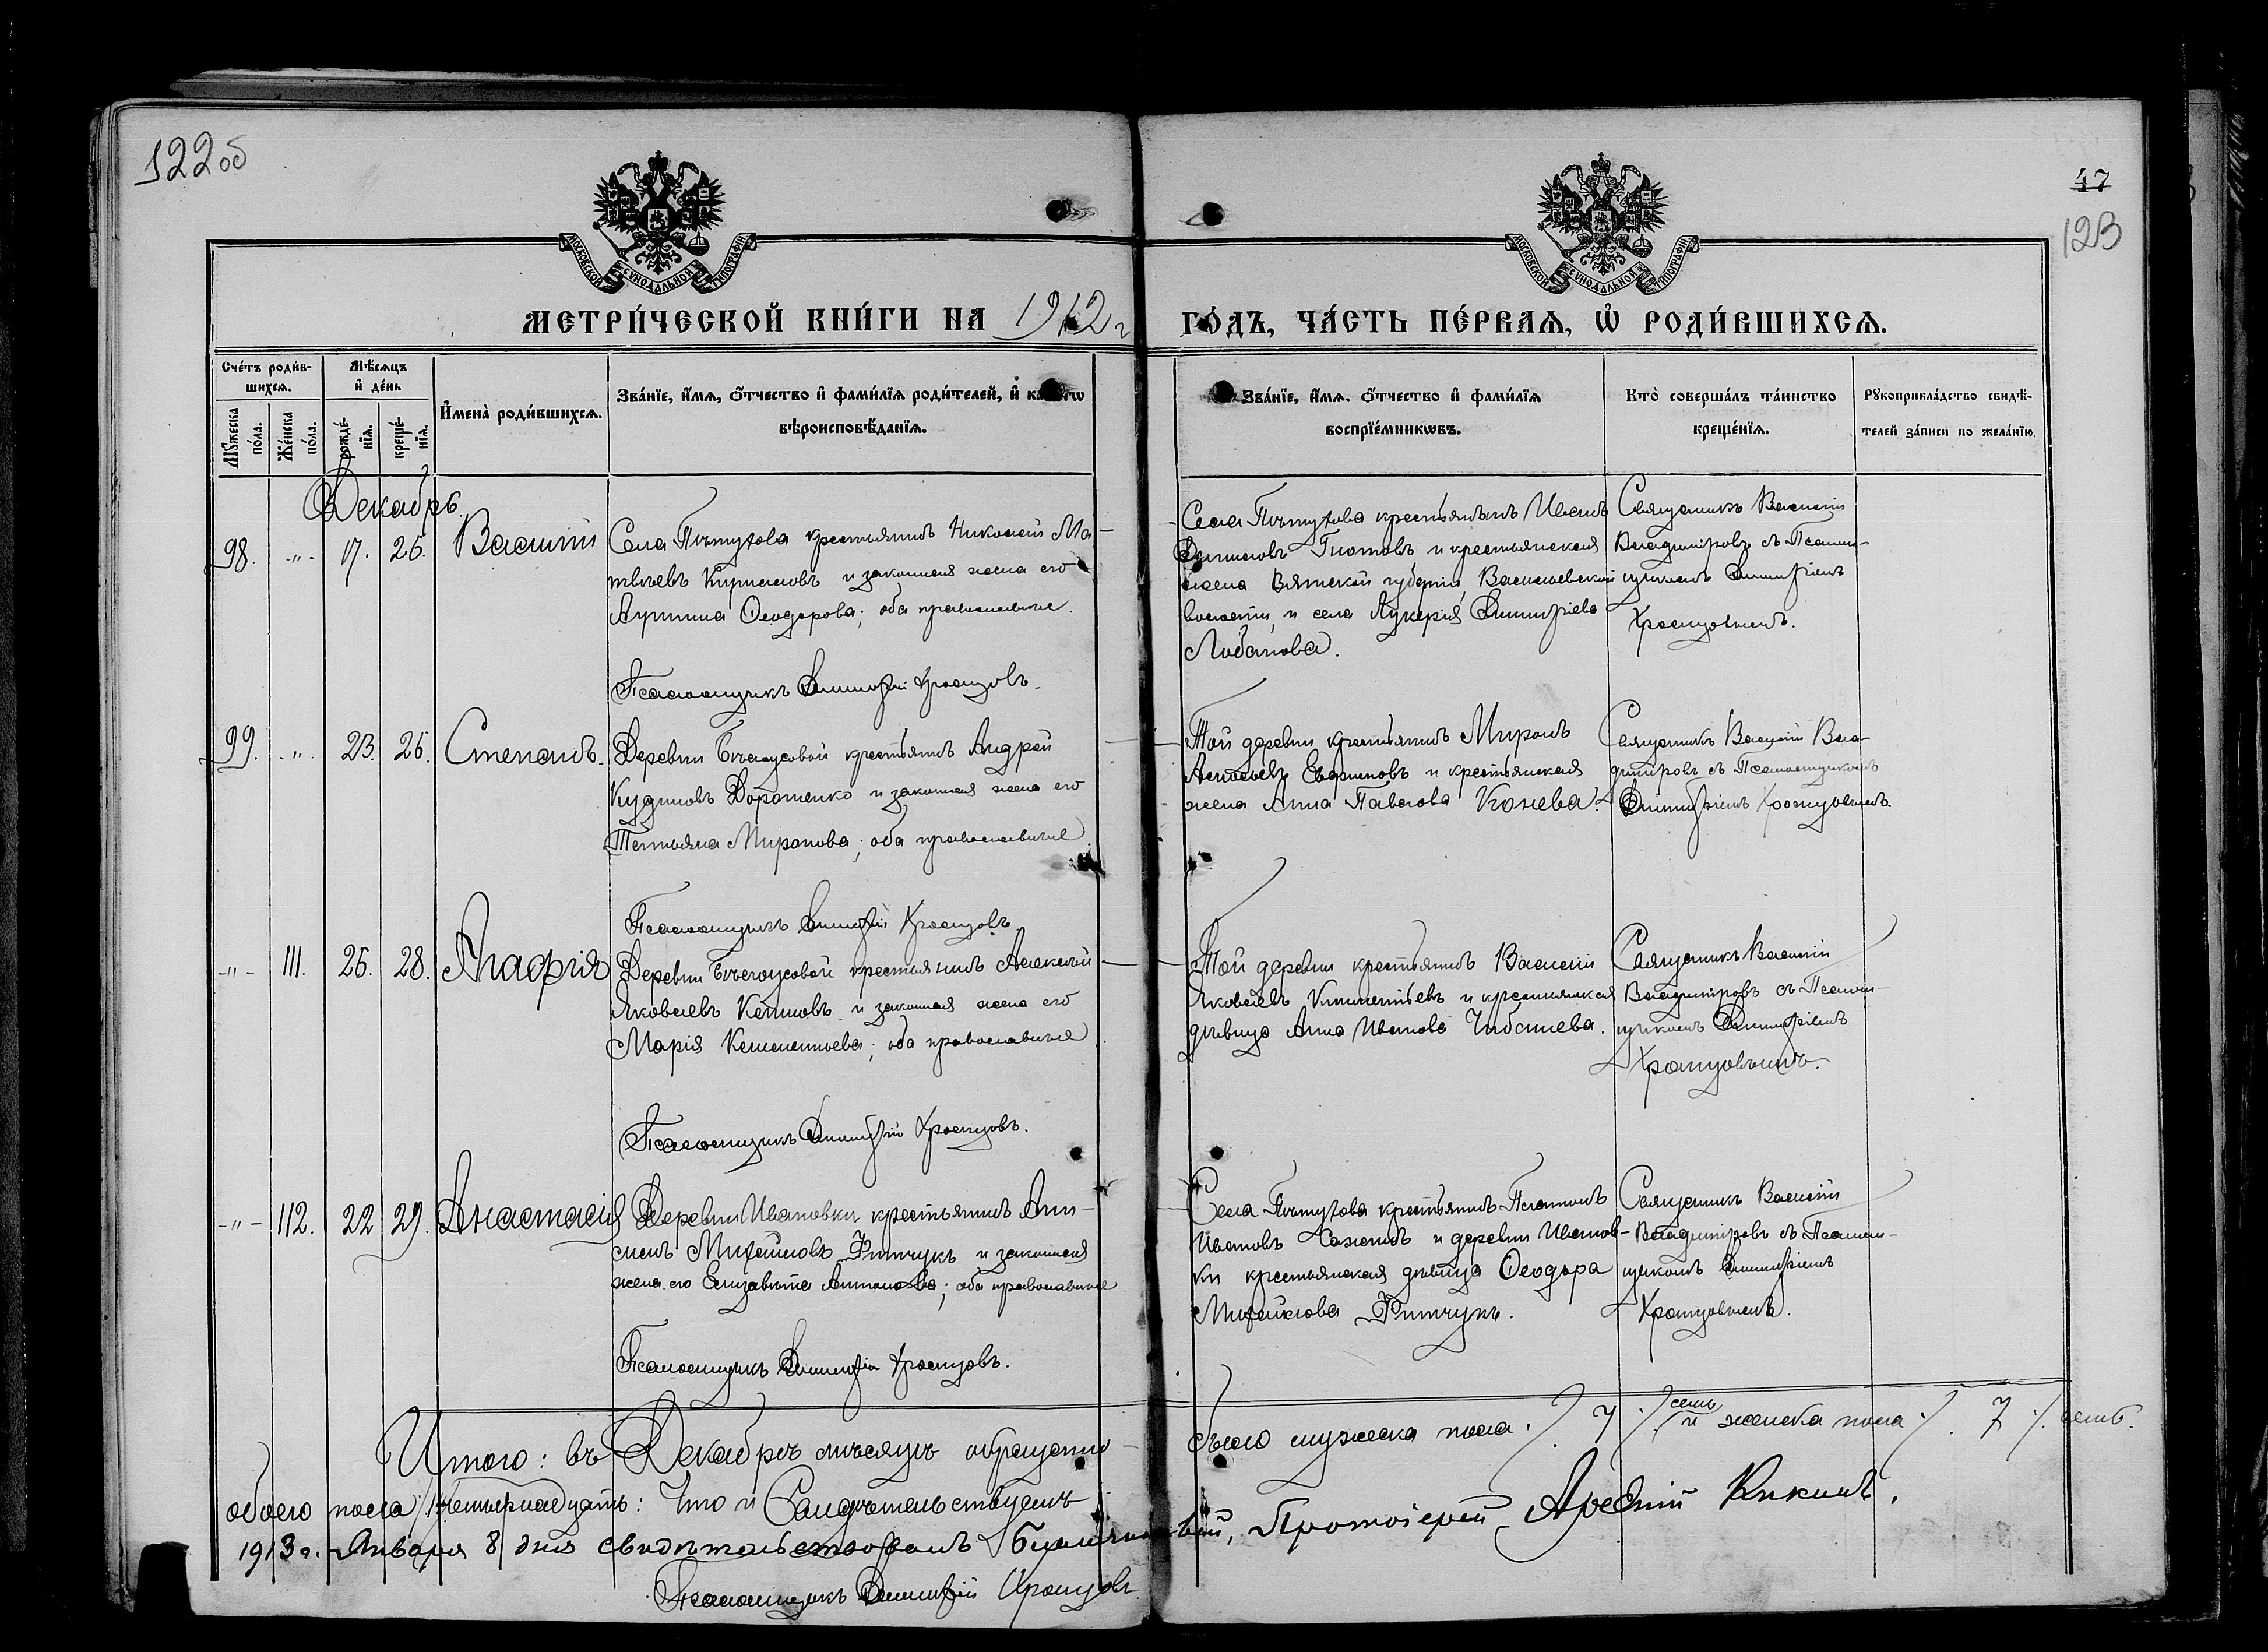 122об
47
123
МОСКОВСКОЙ СѴНОДАЛЬНОЙ ТИПОГРАФІИ
МОСКОВСКОЙ СѴНОДАЛЬНОЙ ТИПОГРАФІИ
МЕТРИ́ЧЕСКОЙ КНИ́ГИ НА 1912 г
ГО́ДЪ, ЧА́СТЬ ПЕ́РВАѦ, Ѡ҆ РОДИ́ВШИХСѦ.
Сче́тъ роди́в-
шихсѧ.
Мѣ́сѧцъ
и҆ де́нь
Мꙋ́жеска
по́ла.
Же́нска
по́ла.
рожде́-
нїѧ.
креще́-
нїѧ.
И҆мена̀ роди́вшихсѧ.
Зва́нїе, и҆́мѧ, ѻ҆́тчество и҆ фами́лїѧ роди́телей, и҆
вѣроисповѣ́данїѧ.
Зва́нїе, и҆́мѧ, ѻ҆́тчество и҆ фами́лїѧ
воспрїе́мникѡвъ.
Кто̀ соверша́лъ та́инство
креще́нїѧ.
Рꙋкоприкла́дство свидѣ́-
телей за́писи по жела́нїю.
Декабрь.
98. -"- 17. 26. Василій
Села Пѣтухова крестьянинъ Николай Ма-
твѣевъ Кирилловъ и законная жена его
Ѳеодорова; оба православные.
Псаломщикъ Димитрій Храпцовъ.
Села Пѣтухова крестьянинъ Иванъ
и крестьянская
жена Вятской губерніи, Васильевской
волости, и села Лукерія Димитріева
Лобанова.
Священникъ Василій
Владиміровъ съ Псалом-
щикомъ Димитріемъ
Храпцовымъ.
99. -"- 23. 26. Степанъ.
Деревни Бѣлоусовой крестьянинъ Андрей
Кудиновъ Дорошенко и законная жена его
Татьяна Миронова; оба православные
Псаломщикъ Димитрій Храпцовъ.
Той деревни крестьянинъ Миронъ
и крестьянская
жена Анна Павлова Конева.
Священникъ Василій Вла-
диміровъ съ Псаломщикомъ
Димитріемъ Храпцовымъ.
-"- 111. 26. 28. Агафія
Деревни Бѣлоусовой крестьянинъ Алексѣй
Яковлевъ и законная жена его
Марія; оба православные
Псаломщикъ Димитрій Храпцовъ.
Той деревни крестьянинъ Василій
Яковлевъ и крестьянская
дѣвица Анна Иванова
Священникъ Василій
Владиміровъ съ Псалом-
щикомъ Димитріемъ
Храпцовымъ.
-"- 112. 22 29. Анастасія
Деревни Ивановки крестьянинъ Ани-
симъ Михайловъ и законная
жена его Елизавета Антонова; оба православные
Псаломщикъ Димитрій Храпцовъ.
Села Пѣтухова крестьянинъ Платонъ
Ивановъ и деревни Иванов-
ки крестьянская дѣвица Ѳеодора
Михайлова
Священникъ Василій
Владиміровъ съ Псалом-
щикомъ Димитріемъ
Храпцовымъ.
Итого: въ Декабрѣ мѣсяцѣ
было мужска пола ./. 7 ./. семь и женска пола ./. 7 ./. семь.
обоего пола четырнадцать: Что и Свидѣтельствуемъ
1913 г. Января 8 дня свидѣтельствовалъ Благочинный, Протоіерей Арсеній
Псаломщикъ Димитрій Храпцовъ